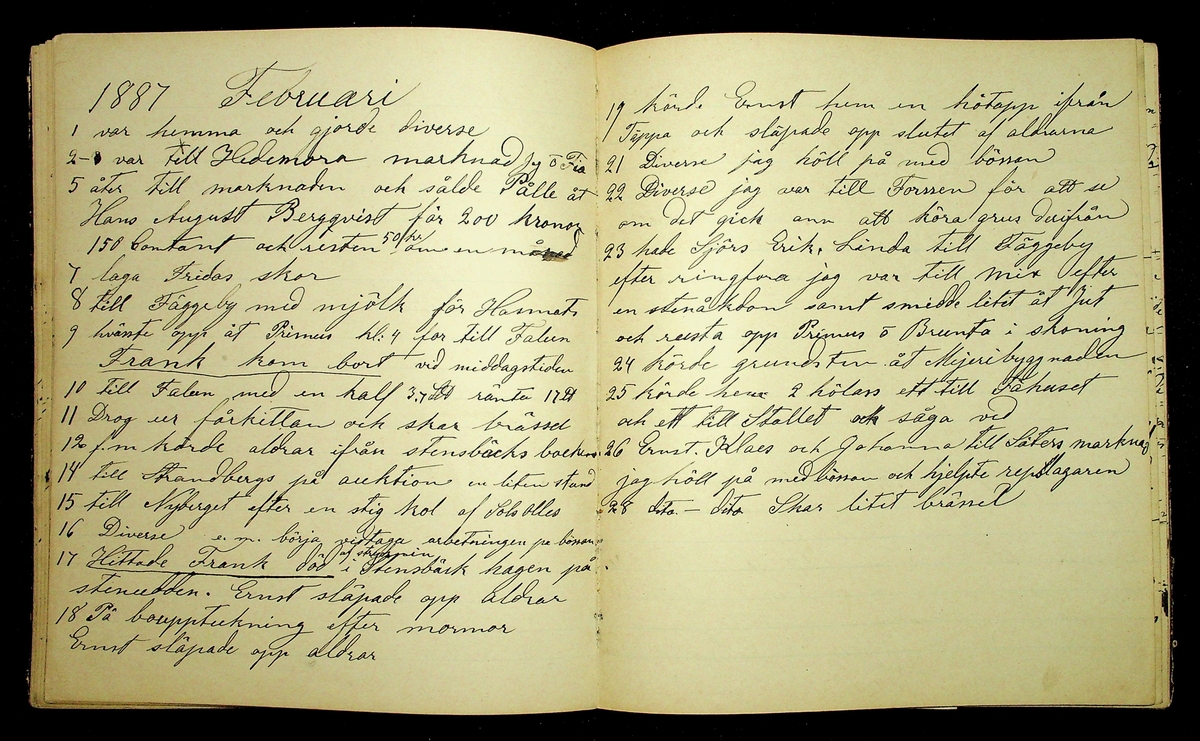 1887 Februari
1 var hemma och gjorde diverse
2 var till Hedemora marknad jeg o Fia
5 åter till marknaden och sålde Pålle åt
Hans August Bergqvist för 200 kronor
150 Contant och resten 50 kr om en månad
7 laga Fridas skor
8 till Fäggeby med mjölk för Hasmats
9 hvässte opp åt Primus kl: 4 for till Falun
Frank kom bort vid middagstiden
10 till Falun med en half ränta
11 Drog ur fårkittan och skar brässel
12 f.m körde aldrar ifrån stensbäcks
14 till Strandbergs på auktion en liten stund
15 till Nyberget efter en stig kol af Sols Olles
16 Diverse e. m. börja vidtaga arbetningen på bössan
17 Hittade Frank död i Stensbäck hagen på
stenudden. Ernst släpade opp aldrar
18 På bouppteckning efter mormor
Ernst släpade opp aldrar
19 körde Ernst hem en hötapp ifrån
Täppa och släpade opp slutet af aldrarna
21 Diverse jag höll på med bössan
22 Diverse jag var till Forssen för att se
om det gick ann att köra grus duifrån
23 hade Sjörs Erik. Linda till Fäggeby
efter ringfora jag var till Mix efter
en stenåkdon samt smidde litet åt Jut
och reesta opp Primus o Brunta i skoning
24 körde grundsten åt Mejeribyggnaden
25 körde hem 2 hölass ett till Fähuset
och ett till Stallet och såga ved
26 Ernst. Klaes och Johanna till Säters marknad
jag höll på med bössan och hjelpte repslagaren
28 dito - dito Skar litet brässel